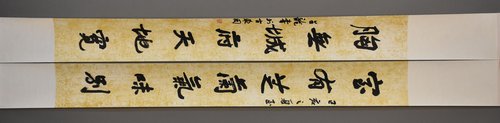 胸無城府天地寬
室有芝蘭氣味別